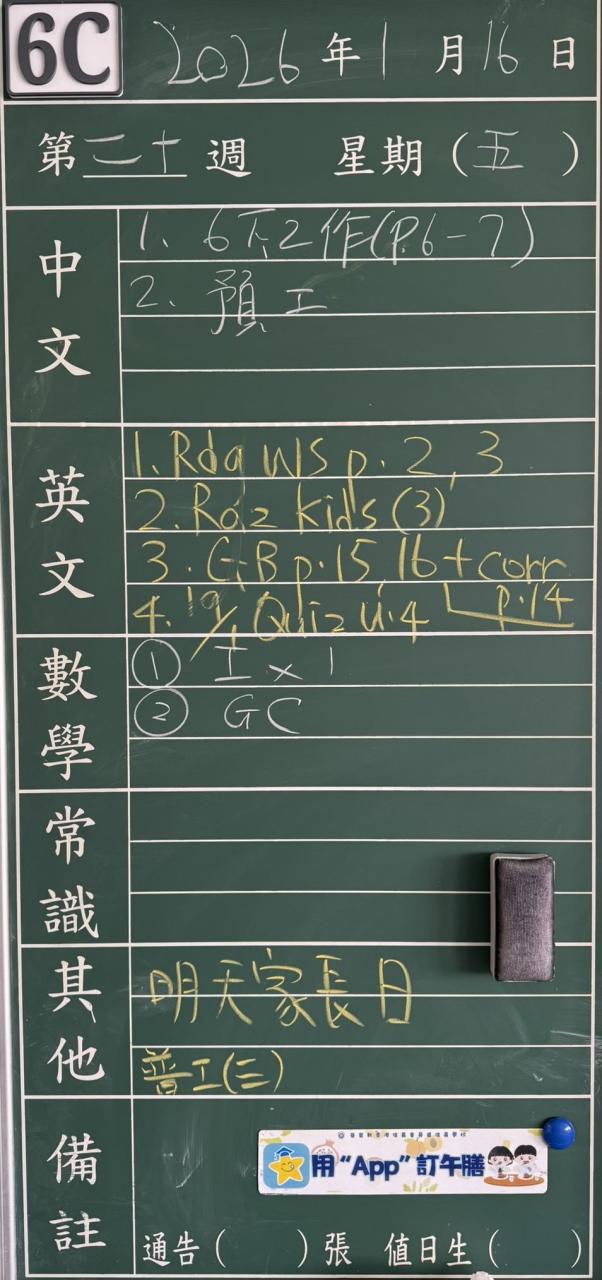 6C 2026年1月16日
第二十週 星期(五)
中文
1. 6下工作(P.6-7)
2. 預工
英文
1. Rdg WS p. 2, 3
2. Raz kids (3)
3. GB p.15, 16 + corr
4. 19/1 Quiz u.4 p.14
數學
① 工 x 1
② GC
常識
其他
明天家長日
普工(三)
備註
用“App”訂午膳
通告( )張 值日生( )